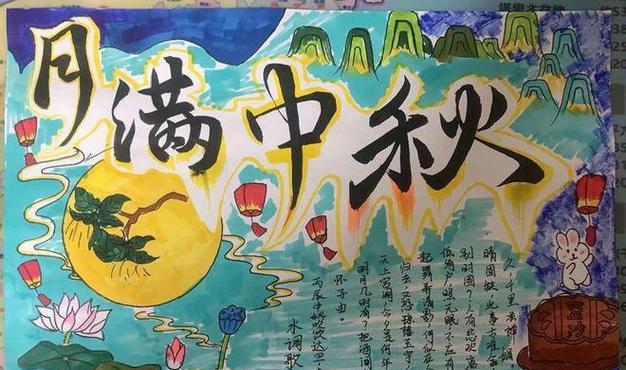 月满中秋
水调歌
丙辰中秋欢达旦
怀子由。
明月几时有？把酒问
天上宫阙，今夕是何年
归去，又恐琼楼玉宇
起舞弄清影，何似在
低绮户，照无眠。不应有
别时圆？人有悲欢离
晴圆缺，此事古难全
久，千里共婵娟。
豆沙